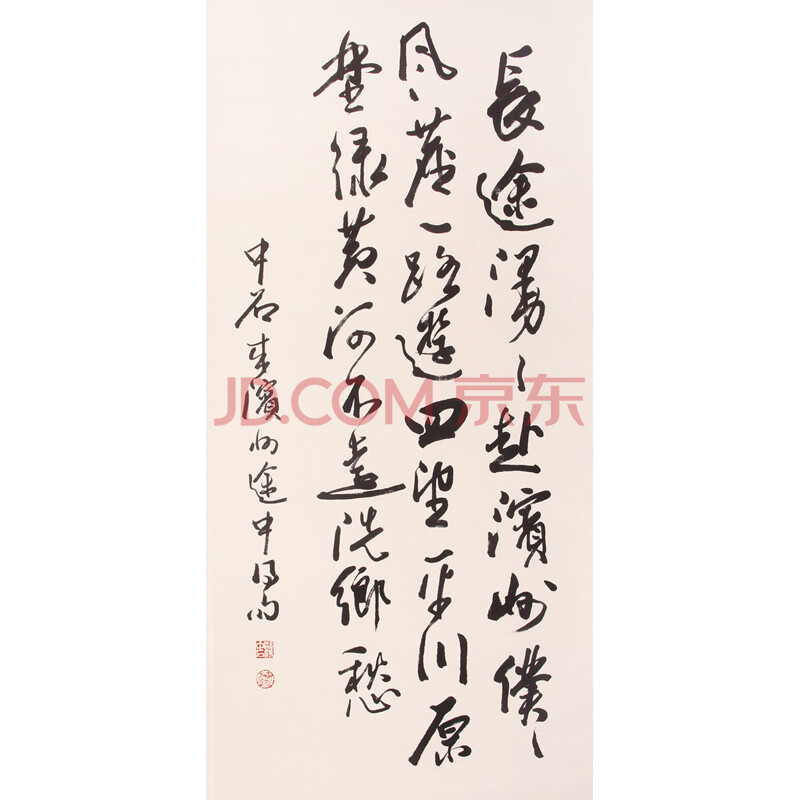 長途漫々赴濱州僕々
風塵一路遊四望平川原
埜綠黃河不遠洗鄉愁
中石來濱州途中得句
JD.COM 京东